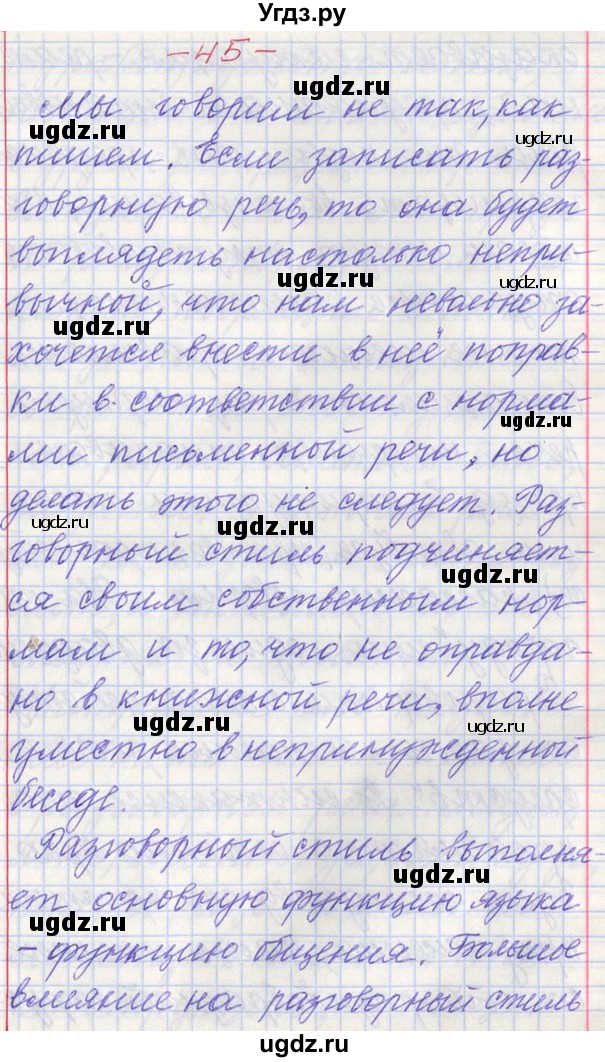 Угдз.ру
-45-
Мы говорим не так, как
пишем. Если записать раз-
говорную речь, то она будет
выглядеть настолько непри-
вычной, что нам невольно за-
хочется внести в неё поправ-
ки в соответствии с норма-
ми письменной речи, но
делать этого не следует. Раз-
говорный стиль подчиняет-
ся своим собственным нор-
мам и то, что не оправда-
но в книжной речи, вполне
уместно в непринужденной
беседе.
Разговорный стиль выполня-
ет основную функцию языка
- функцию общения. Большое
влияние на разговорный стиль
ugdz.ru